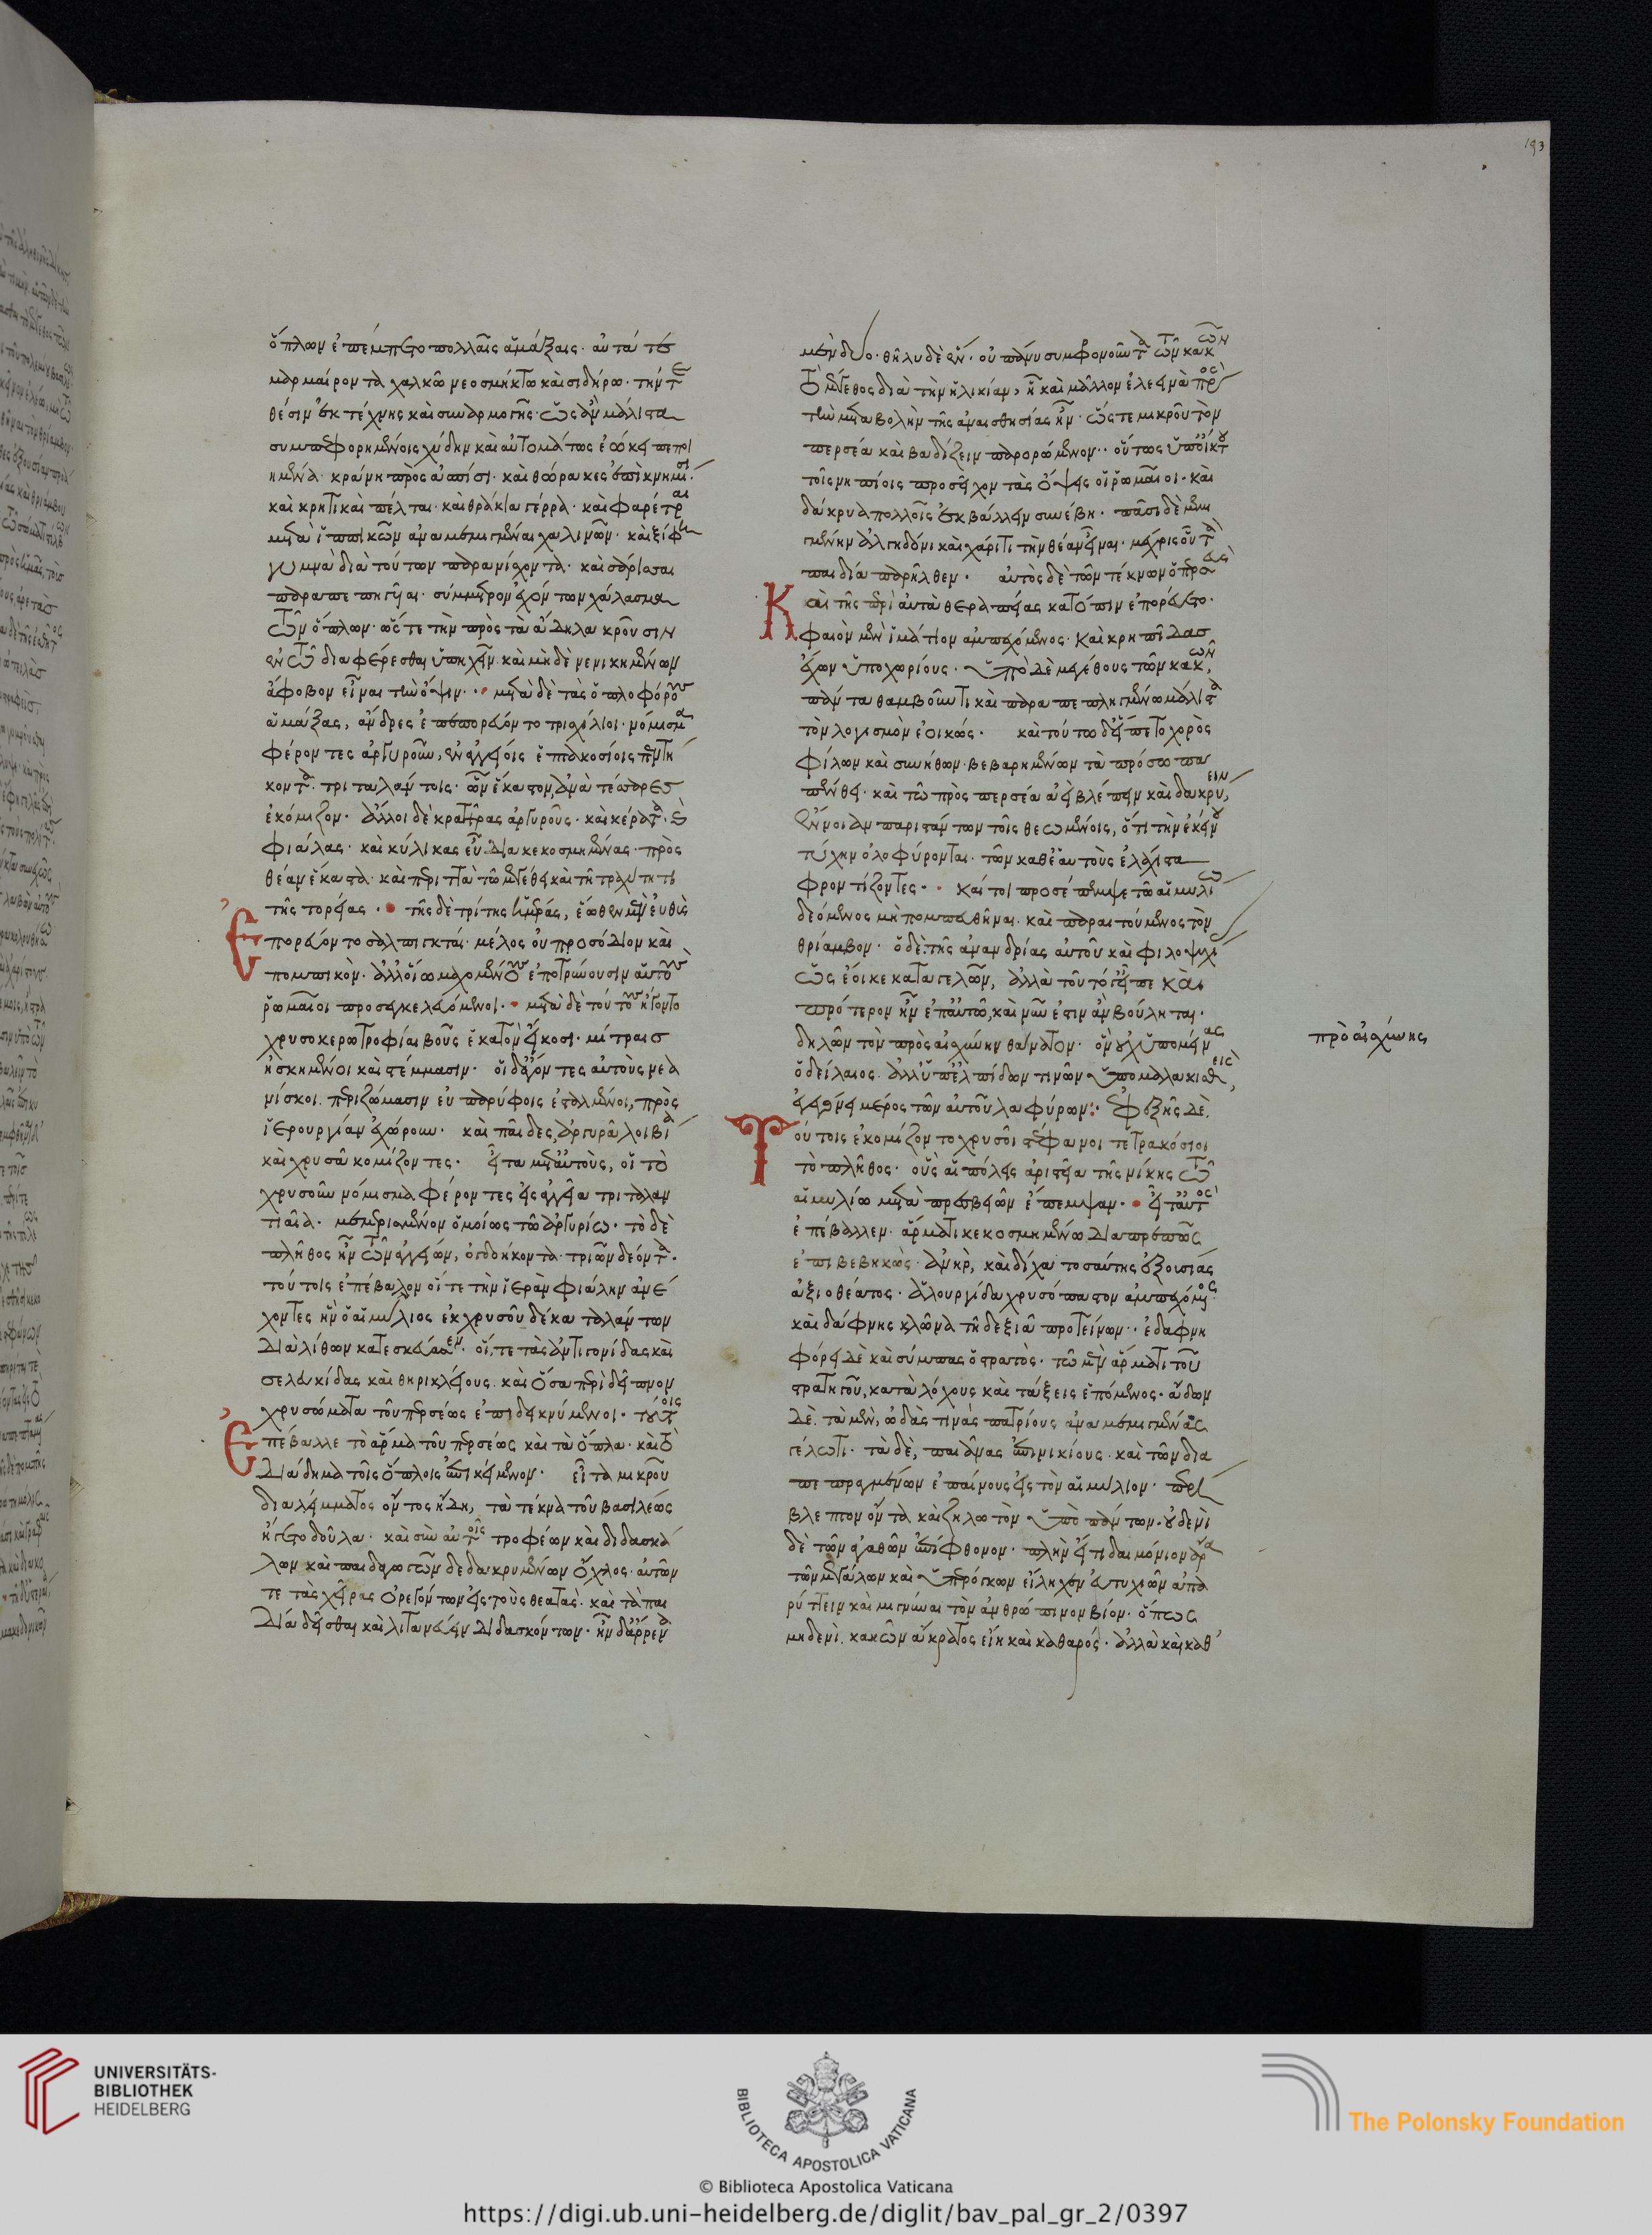 ὅπλων ἐπέμπετο πολλαῖς ἁμάξαις· αὐτά τε
μαρμαίροντα χαλκῶ νεοσμήκτω καὶ σιδήρω· τήν τε
θέσιν ἐκ τέχνης καὶ συναρμογῆς· ὡς ἂν μάλιστα
συμπεφορημένοις χύδην καὶ αὐτομάτως ἐώκει πεποι
ημένα· κράνη πρὸς ἀσπίσι· καὶ θώρακες ἐπὶ κνημῖσι·
καὶ κρητικαὶ πέλται· καὶ θράκια γέρρα· καὶ φαρέτραι
μετὰ ἱππικῶν ἀναμεμιγμέναι χαλινῶν· καὶ ξίφη
γυμνὰ διὰ τούτων παρανίσχοντα· καὶ σάρισσαι
παραπεπηγῦιαι· σύμμετρον ἐχόντων χάλασμα
τῶν ὅπλων· ὥστε τὴν πρὸς τὰ ἄλληλα κροῦσιν
ἐν τῶ διαφέρεσθαι ὑπηχεῖν καὶ μὴ δὲ νενικημένων
ἄφοβον εἶναι τὴν ὄψιν· μετὰ δὲ τὰς ὁπλοφόρους
ἁμάξας, ἄνδρες ἐπεπορεύοντο τρισχίλιοι· νόμισμα
φέροντες ἀργυροῦν, ἐν ἀγγείοις ἑπτακοσίοις πεντή
κοντα τριταλάντοις· ὧν ἕκαστον, ἀνὰ τέσσαρες
ἐκόμιζον· ἄλλοι δὲ κρατῆρας ἀργυροῦς· καὶ κέρατα καὶ
φιάλας· καὶ κύλικας εὖ διακεκοσμημένας· πρὸς
θέαν ἕκαστα· καὶ περιττὰ τῶ μεγέθει καὶ τῆ παχύτητι
τῆς τορείας· τῆς δὲ τρίτης ἡμέρας, ἕωθεν μὲν εὐθὺς
Ἐπορεύοντο σαλπιγκταί· μέλος οὐ προσόδιον καὶ
πομπικὸν· ἀλλ' οἵω μαχομένους ἐποτρύνουσιν αὑτοὺς
ῥωμαῖοι προσεγκελευόμενοι· μετὰ δὲ τούτους ἤγοντο
χρυσοκερω τροφίαι βοῦς ἑκατὸν εἴκοσι· μίτραισ
ἠσκημένοι καὶ στέμμασιν· οἱ δ' ἄγοντες αὐτοὺς νεα
νίσκοι. περιζώμασιν εὐπαρύφοις ἐσταλμένοι, πρὸς
ἱερουργίαν ἐχώρουν· καὶ παῖδες, ἀργυρᾶ λοιβεῖα
καὶ χρυσᾶ κομίζοντες· εἶτα μετ' αὐτοὺς, οἱ τὸ
χρυσοῦν νόμισμα φέροντες εἰς ἀγγεῖα τριταλαν
τιαῖα· μεμερισμένον ὁμοίως τῶ ἀργυρίω· τὸ δὲ
πλῆθος ἦν τῶν ἀγγείων, ὀγδοήκοντα τριῶν δέοντα·
τούτοις ἐπέβαλον οἵ τε τὴν ἱερὰν φιάλην ἀνέ
χοντες ἣν ὁ αἰμύλιος ἐκ χρυσοῦ δέκα ταλάντων
διαλίθων κατεσκεύασεν· οἵ, τε τὰς ἀντιγονίδας καὶ
σελευκίδας καὶ θηρικλείους· καὶ ὅσα περὶ δεῖπνον
χρυσώματα τοῦ περσέως ἐπιδεικνύμενοι· τούτοις
Ἐπέβαλλε τὸ ἅρμα τοῦ περσέως καὶ τὰ ὅπλα· καὶ τὸ
διάδημα τοῖς ὅπλοις ἐπικείμενον· εἶτα μικροῦ
διαλείμματος ὄντος ἤδη, τὰ τέκνα τοῦ βασιλέως
ἤγετο δοῦλα· καὶ σὺν αὐτοῖς τροφέων καὶ διδασκά
λων καὶ παιδαγωγῶν δεδακρυμένων ὄχλος· αὐτῶν
τε τὰς χεῖρας ὀρεγόντων εἰς τοὺς θεατάς· καὶ τὰ παι
δία δεῖσθαι καὶ λιτανεύειν διδασκόντων· ἦν δ' ἄρρενα
μὲν δύο· θῆλυ δὲ ἕν· οὐ πάνυ συμφρονοῦντα τῶν κακῶν
τὸ μέγεθος διὰ τὴν ἡλικίαν, ἧ καὶ μᾶλλον ἐλεεινὰ πρὸς
τὴν μεταβολὴν τῆς ἀναισθησίας ἦν· ὥστε μικροῦ τὸν
περσέα καὶ βαδίζειν παρορώμενον· οὕτως ὑπ' οἴκτου
τοῖς νηπίοις προσεῖχον τὰς ὄψεις οἱ ῥωμαῖοι· καὶ
δάκρυα πολλοῖς ἐκβάλλειν συνέβη· πᾶσι δὲ μεμι
γμένην ἀλγηδόνι καὶ χάριτι τὴν θέαν εἶναι· μέχρις οὗ τὰ
παιδία παρῆλθεν· αὐτὸς δὲ τῶν τέκνων ὁ περσεὺς
Καὶ τῆς περὶ αὐτὰ θεραπείας κατόπιν ἐπορεύετο·
φαιὸν μὲν ἱμάτιον ἀμπεχόμενος· καὶ κρηπῖδασ
ἔχων ὑποχωρίους· ὑπὸ δὲ μεγέθους τῶν κακῶν,
πάντα θαμβοῦντι καὶ παραπεπληγμένω μάλιστα
τὸν λογισμὸν ἐοικώς· καὶ τούτω δ' εἵπετο χορὸς
φίλων καὶ συνήθων· βεβαρημένων τὰ πρόσωπα
πένθει· καὶ τῶ πρὸς περσέα ἀεὶ βλέπειν καὶ δακρύειν,
ἔννοιαν παριστάντων τοῖς θεωμένοις, ὅτι τὴν ἐκείνου
τύχην ὀλοφύρονται· τῶν καθ' ἑαυτοὺς ἐλάχιστα
φροντίζοντες· καί τοι προσέπεμψε τῶ αἰμυλίω
δεόμενος μὴ πομπευθῆναι· καὶ παραιτούμενος τὸν
θρίαμβον· ὁ δὲ τῆς ἀνανδρίας αὐτοῦ καὶ φιλοψυχίας
ὡς ἔοικε καταγελῶν, ἀλλὰ τοῦτό γ' εἶπε καὶ
πρότερον ἦν ἐπ' αὐτῶ, καὶ νῦν ἐστιν ἂν βούληται·
δηλῶν τὸν πρὸς αἰσχύνην θάνατον· ὃν οὐχ ὑπομείνας
ὁ δείλαιος· ἀλλ' ὑπ' ἐλπίδων τινῶν ὑπομαλακισθεὶς,
ἐγεγόνει μέρος τῶν αὐτοῦ λαφύρων: ἐφεξῆς δὲ,
Τούτοις ἐκομίζοντο χρυσοῖ στέφανοι τετρακόσιοι
τὸ πλῆθος· οὓς αἱ πόλεις ἀριστεῖα τῆς νίκης τῶ
αἰμυλίω μετὰ πρεσβειῶν ἔπεμψαν· εἶτ' αὐτὸς
ἐπέβαλλεν· ἅρματι κεκοσμημένω διαπρεπῶς
ἐπιβεβηκὼς· ἀνὴρ, καὶ δίχα τοσαύτης ἐξουσίας
ἀξιοθέατος· ἁλουργίδα χρυσόπαστον ἀμπεχόμενος·
καὶ δάφνης κλῶνα τῆ δεξιᾶ προτείνων· ἐδαφνη
φόρει δὲ καὶ σύμπας ὁ στρατὸς· τῶ μὲν ἅρματι τοῦ
στρατηγοῦ, κατὰ λόχους καὶ τάξεις ἑπόμενος· ἄδων
δὲ· τὰ μὲν, ὠδὰς τινὰς πατρίους ἀναμεμιγμένας
γέλωτι· τὰ δὲ, παιᾶνας ἐπινικίους· καὶ τῶν δια
πεπραγμένων ἐπαίνους εἰς τὸν αἰμύλιον· περί
βλεπτον ὄντα καὶ ζηλωτὸν ὑπὸ πάντων· οὐδενὶ
δὲ τῶν ἀγαθῶν ἐπίφθονον· πλὴν εἴ τι δαιμόνιον ἄρα
τῶν μεγάλων καὶ ὑπερόγκων εἴληχεν εὐτυχιῶν ἀπα
ρύττειν καὶ μιγνύναι τὸν ἀνθρώπινον βίον· ὅπως
μηδενὶ κακῶν ἄκρατος εἴη καὶ καθαρός· ἀλλὰ καὶ καθ'
πρὸ αἰσχύνης
193
UNIVERSITÄTS-
BIBLIOTHEK
HEIDELBERG
BIBLIOTECA APOSTOLICA VATICANA
The Polonsky Foundation
© Biblioteca Apostolica Vaticana
https://digi.ub.uni-heidelberg.de/diglit/bav_pal_gr_2/0397